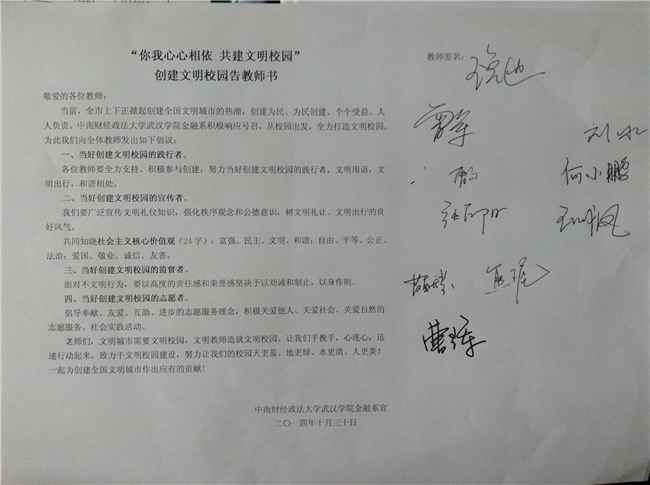 “你我心心相依 共建文明校园”
创建文明校园告教师书
敬爱的各位教师：
当前，全市上下正掀起创建全国文明城市的热潮，创建为民、为民创建、个个受益、人
人负责，中南财经政法大学武汉学院金融系积极响应号召，从校园出发，全力打造文明校园。
为此我们向全体教师发出如下倡议：
一、当好创建文明校园的践行者。
各位教师要全力支持、积极参与创建，努力当好创建文明校园的践行者，文明用语，文
明出行，和谐相处。
二、当好创建文明校园的宣传者。
我们要广泛宣传文明礼仪知识，强化秩序观念和公德意识，树文明礼让、文明出行的良
好风气。
共同知晓社会主义核心价值观（24字）：富强、民主、文明、和谐；自由、平等、公正、
法治；爱国、敬业、诚信、友善。
三、当好创建文明校园的监督者。
面对不文明行为，要以高度的责任感和荣誉感坚决予以劝诫和制止，以身作则。
四、当好创建文明校园的志愿者。
倡导奉献、友爱、互助、进步的志愿服务理念，积极关爱他人、关爱社会、关爱自然的
志愿服务、社会实践活动。
老师们，文明城市需要文明校园，文明教师造就文明校园。让我们手挽手，心连心，迅
速行动起来，致力于文明校园建设，努力让我们的校园天更蓝、地更绿、水更清、人更美！
一起为创建全国文明城市作出应有的贡献！
中南财经政法大学武汉学院金融系宣
二〇一四年十月三十日
教师签名：
何小鹏